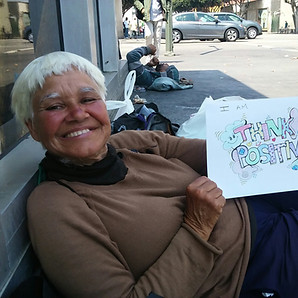 I AM
THINK
POSITIV